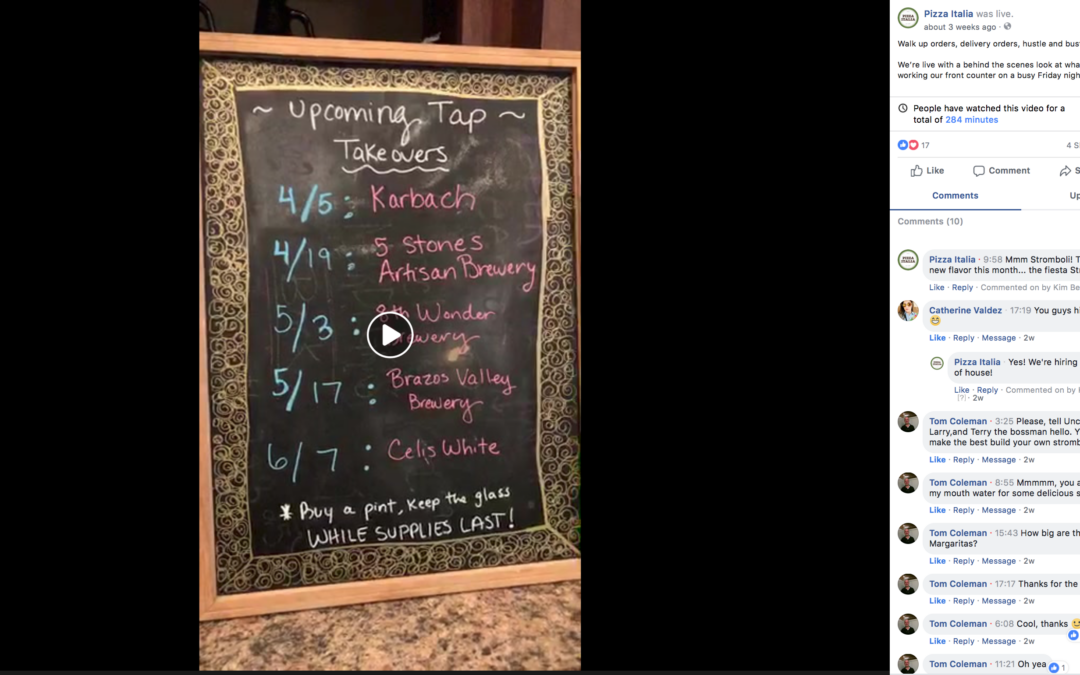 ~ Upcoming Tap ~
Takeovers
4/5 : Karbach
4/19 : 5 Stones
Artisan Brewery
5/3 : 8th Wonder
5/17 : Brazos Valley
Brewery
6/7 : Celis White
* Buy a pint, keep the glass
WHILE SUPPLIES LAST!
Pizza Italia was live.
about 3 weeks ago ·
Walk up orders, delivery orders, hustle and
We're live with a behind the scenes look at
working our front counter on a busy Friday
People have watched this video for a
total of 284 minutes
17
4
Like Comment
Comments
Comments (10)
Pizza Italia · 9:58 Mmm Stromboli!
new flavor this month... the fiesta
Like · Reply · Commented on by Kim
Catherine Valdez · 17:19 You guys
Like · Reply · Message · 2w
Pizza Italia · Yes! We're hiring
of house!
Like · Reply · Commented on by
[?] · 2w
Tom Coleman · 3:25 Please, tell
Larry,and Terry the bossman hello.
make the best build your own
Like · Reply · Message · 2w
Tom Coleman · 8:55 Mmmmm, you
my mouth water for some delicious
Like · Reply · Message · 2w
Tom Coleman · 15:43 How big are
Margaritas?
Like · Reply · Message · 2w
Tom Coleman · 17:17 Thanks for the
Like · Reply · Message · 2w
Tom Coleman · 6:08 Cool, thanks
Like · Reply · Message · 2w
Tom Coleman · 11:21 Oh yea
1